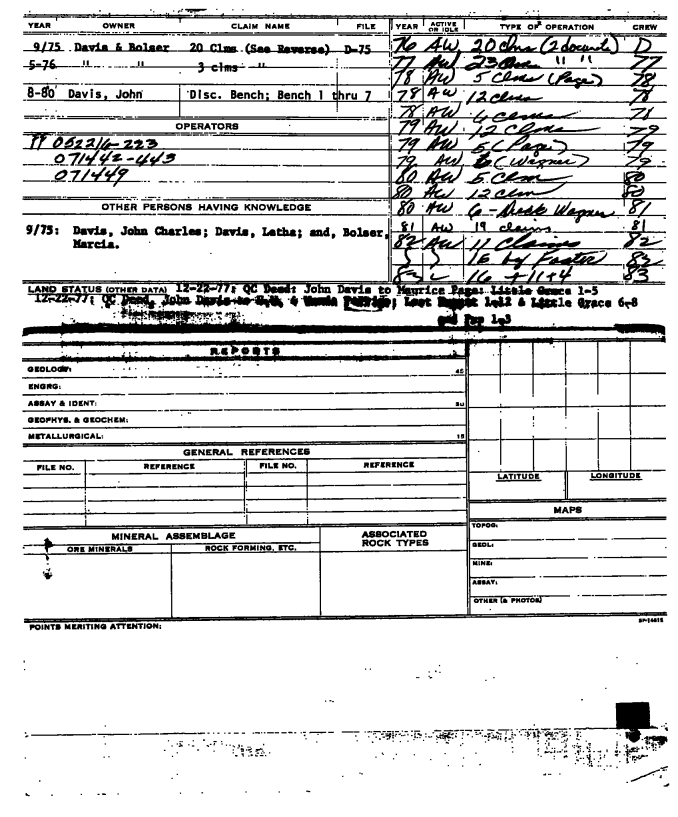 YEAR OWNER CLAIM NAME FILE
9/75 Davis & Bolser 20 Clms (See Reverse) D-75
5-76 " " 3 clms "
8-80 Davis, John Disc. Bench; Bench 1 thru 7
OPERATORS
052216-223
071442-443
071449
OTHER PERSONS HAVING KNOWLEDGE
9/75: Davis, John Charles; Davis, Letha; and, Bolser,
Marcia.
YEAR ACTIVE OR IDLE TYPE OF OPERATION CREW
76 AW 20 clms (2 docunts) D
77 AW 23 Clms " " 77
78 AW 5 Clms (Page) 78
78 AW 12 Clms 78
78 AW 6 Clms 78
79 AW 12 Clms 79
79 AW 5 (Page) 79
79 AW 6 (Wagner) 79
80 AW 5 Clm 80
80 AW 12 clm 80
80 AW 6 - Wagner 81
81 AW 19 claims 81
82 AW 11 Claims 82
} } 15 by Foster 82
83 16 + 11 + 4 83
LAND STATUS (OTHER DATA) 12-22-77: QC Deed: John Davis to Maurice Page: Little Grace 1-5
12-22-77: QC Deed, John Davis to & 1-12 & Little Grace 6-8
and 1-3
REPORTS
GEOLOGY: 45
ENGRG:
ASSAY & IDENT:
GEOPHYS. & GEOCHEM:
METALLURGICAL: 15
GENERAL REFERENCES
FILE NO. REFERENCE FILE NO. REFERENCE
LATITUDE LONGITUDE
MAPS
TOPOG:
GEOL:
MINE:
ASSAY:
OTHER (& PHOTOS)
MINERAL ASSEMBLAGE
ORE MINERALS ROCK FORMING, ETC.
ASSOCIATED
ROCK TYPES
POINTS MERITING ATTENTION: